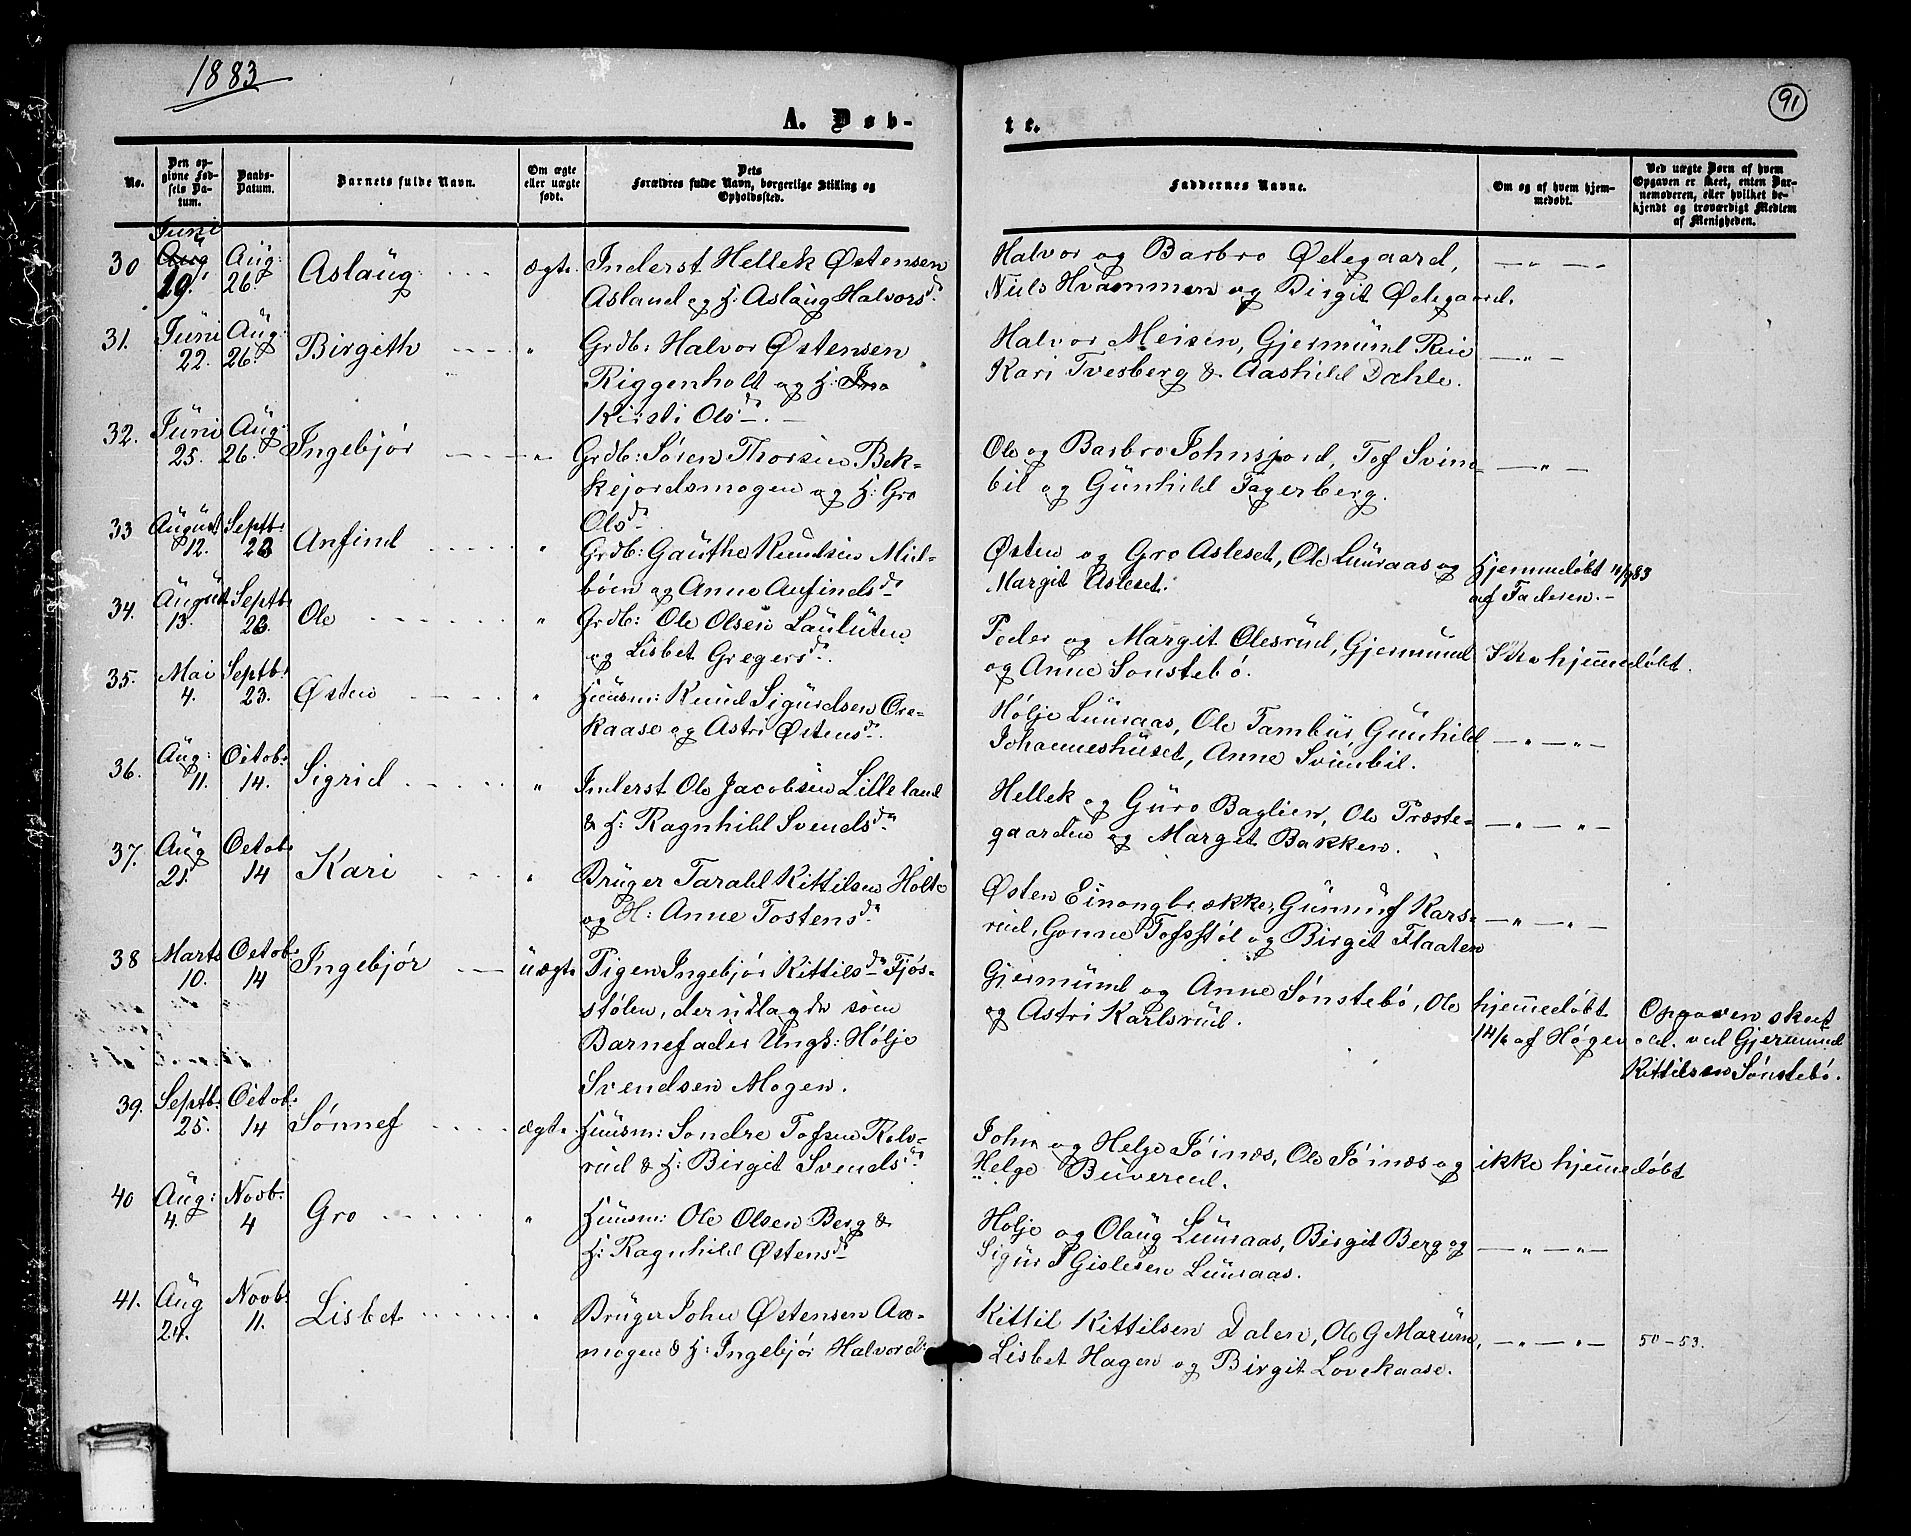 1883
91
A. Døb-
te.
No.
Den op-
givne Fød-
sels Da-
tum.
Daabs-
Datum.
Barnets fulde Navn.
Om ægte
eller uægte
født.
Dets
Forældres fulde Navn, borgerlige Stilling og
Opholdssted.
Faddernes Navne.
Om og af hvem hjem-
medøbt.
Ved uægte Børn af hvem
Opgaven er skeet, enten Bar-
nemoderen, eller hvilket be-
kjendt og troværdigt Medlem
af Menigheden.
30 Juni Aug 19. Aug: 26. Aslaug ægte Inderst Hellek Østensen
Asland og H: Aslaug Halvorsdr.
Halvor og Barbro Ødegaard,
Niels Hvammen og Birgit Ødegaard.
31. Juni 22. Aug: 26. Birgith " Grdb: Halvor Østensen
Riggenholt og H:
Kirsti Olsdr.
Halvor Meisen, Gjermund Reie
Kari Tvesberg & Aashild Dahle.
32. Juni 25. Aug: 26. Ingebjør " Grdb: Søren Thorsen Bek-
kejordsmogen og H: Gro
Olsdr
Ole og Barbro Johnsjord, Tof Svim-
bil og Gunhild Fagerberg.
33 August 12. Septb: 23 Anfind " Grdb: Gauthe Knudsen Mid-
bøen og Anne Anfindsdr
Østen og Gro Asleset, Ole Luuraas og
Margit Asleset.
Hjemmedøbt
af Faderen.
34. August 13. Septb: 23. Ole " Grdb: Ole Olsen Lauluten
og Lisbet Gregersdr.
Peder og Margit Olesrud, Gjermund
og Anne Sønstebø.
Ikke hjemmedøbt.
35. Mai 4. Septb: 23. Østen " Huusm: Knud Sigurdsen Ore-
kaase og Astri Østensdr.
Hølje Luuraas, Ole Tambur, Gunhild
Johanneshuset, Anne Svimbil.
36. Aug: 11. Octob: 14. Sigrid " Inderst Ole Jacobsen Lilleland
& H: Ragnhild Svendsdr
Hellek og Guro Baglien, Ole Præste-
gaarden og Marget Bakken.
37. Aug 21. Octob: 14 Kari " Bruger Tarald Kittilsen Holte
og H: Anne Tostensdr
Østen Einongbrække, Gunnuf Kars-
rud, Gonne Tofsstøl og Birgit Flaaten
38 Marts 10. Octob: 14 Ingebjør uægte Pigen Ingebjør Kittilsdr Fjøs-
stølen, der udlagde som
Barnefader Ungk: Hølje
Svendsen Mogen.
Gjermund og Anne Sønstebø, Ole
og Astri Karlsrud.
hjemmedøbt
14/6 af Høgen
Opgaven skeet
ved Gjermund
Kittilsen Sønstebø.
39. Septb: 25. Octob: 14 Sønnef ægte Huusm: Sondre Tofsen Rolv-
rud & H: Birgit Svendsdr
John og Helge Jöinæs, Ole Jöinæs og
Helge Buverud.
ikke hjemmedøbt
40 Aug: 4. Novb: 4 Gro " Huusm: Ole Olsen Berg &
H: Ragnhild Østensdr
Hølje og Olaug Luuraas, Birgit Berg og
Sigur Gislesen Luuraas.
41. Aug 24. Novb: 11. Lisbet " Bruger John Østensen Aa-
mogen & H: Ingebjør Halvordr
Kittil Kittilsen Dalen, Ole G Marum,
Lisbet Hagen og Birgit Lovekaase.
50-53.